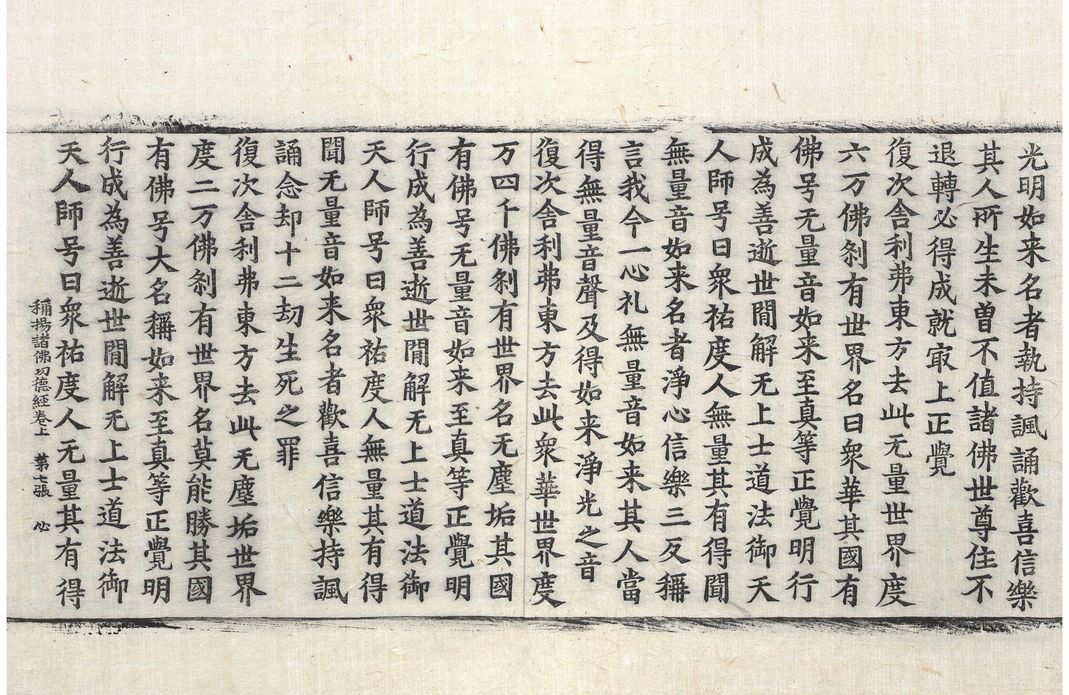 光明如来名者執持諷誦歡喜信樂
其人所生未曽不值諸佛世尊住不
退轉必得成就㝡上正覺
復次舎利弗東方去此无量世界度
六万佛刹有世界名曰衆華其國有
佛号无量音如来至真等正覺明行
成為善逝世間解无上士道法御天
人師号曰衆祐度人無量其有得聞
無量音如来名者淨心信樂三反稱
言我今一心礼無量音如来其人當
得無量音聲及得如来淨光之音
復次舎利弗東方去此衆華世界度
万四千佛刹有世界名无塵垢其國
有佛号无量音如来至真等正覺明
行成為善逝世間解无上士道法御
天人師号曰衆祐度人無量其有得
聞无量音如来名者歡喜信樂持諷
誦念却十二劫生死之罪
復次舎利弗東方去此无塵垢世界
度二万佛刹有世界名莫能勝其國
有佛号大名稱如来至真等正覺明
行成為善逝世間解无上士道法御
天人師号曰衆祐度人无量其有得
稱揚諸佛功德經卷上　第七張　必